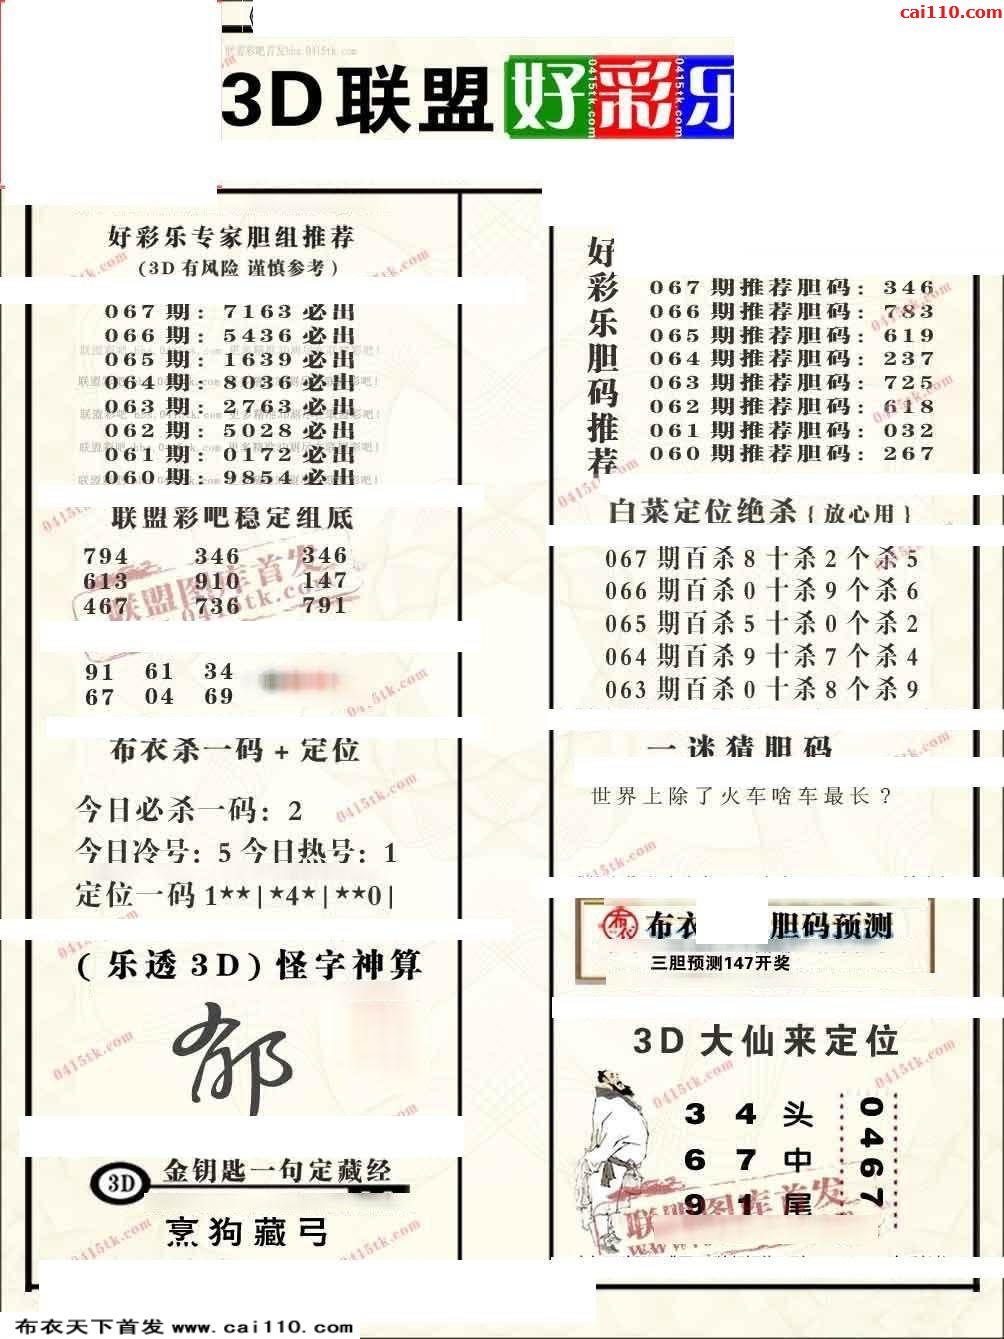 cai110.com
3D联盟好彩乐
好彩乐专家胆组推荐
(3D有风险 谨慎参考)
067期: 7163必出
066期: 5436必出
065期: 1639必出
064期: 8036必出
063期: 2763必出
062期: 5028必出
061期: 0172必出
060期: 9854必出
联盟彩吧稳定组底
794 346 346
613 910 147
467 736 791
91 61 34
67 04 69
布衣杀一码+定位
今日必杀一码: 2
今日冷号: 5 今日热号: 1
定位一码 1**|*4*|**0|
(乐透3D)怪字神算
郁
3D 金钥匙一句定藏经
烹狗藏弓
好彩乐胆码推荐
067期推荐胆码: 346
066期推荐胆码: 783
065期推荐胆码: 619
064期推荐胆码: 237
063期推荐胆码: 725
062期推荐胆码: 618
061期推荐胆码: 032
060期推荐胆码: 267
白菜定位绝杀{放心用}
067期百杀8十杀2个杀5
066期百杀0十杀9个杀6
065期百杀5十杀0个杀2
064期百杀9十杀7个杀4
063期百杀0十杀8个杀9
一迷猜胆码
世界上除了火车啥车最长?
布衣 胆码预测
三胆预测147开奖
3D大仙来定位
3 4 头
6 7 中
9 1 尾
0467
联盟图库首发
布衣天下首发 www.cai110.com